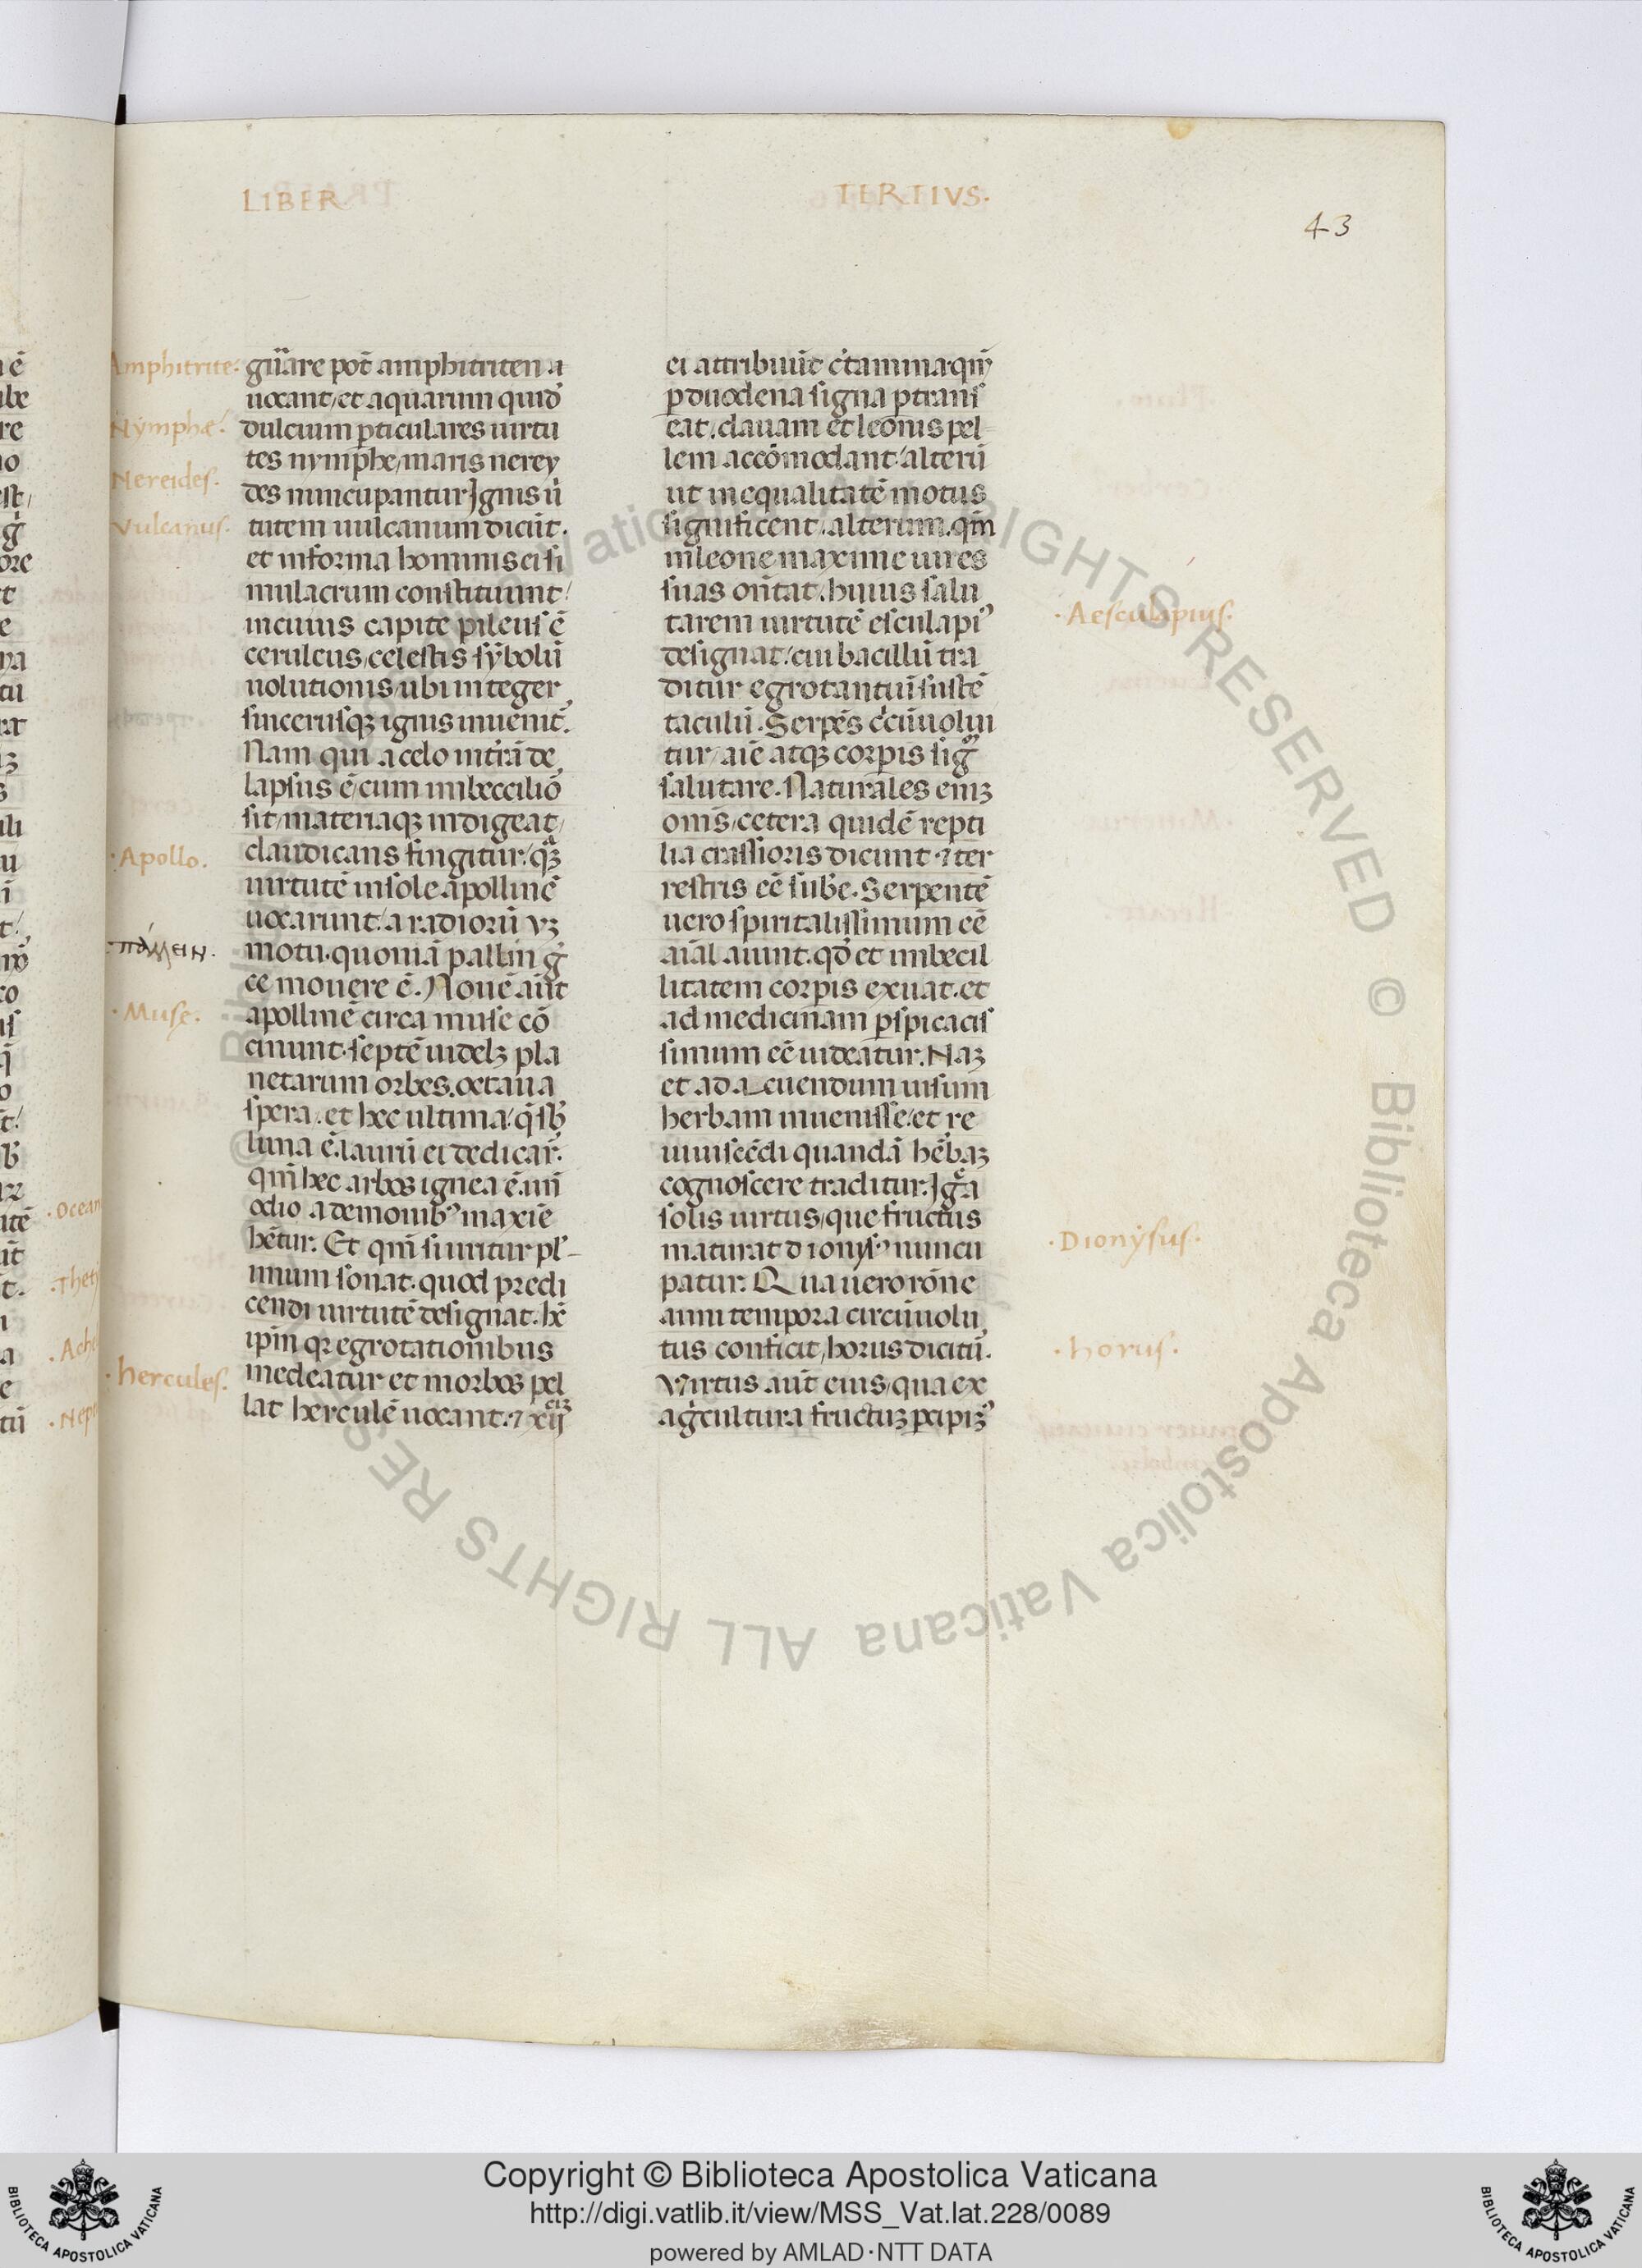 LIBER TERTIVS.
43
Amphitrite.
gn̄are pot̄ amphitriten a
uocant/et aquarum quid̄
Nymphæ.
dulcium ꝑticulares uirtu
tes nymphe/maris nerey
Nereides.
des nuncupantur Ignis ū
Vulcanus.
tutem uulcanum dicūt.
et in forma hominis ei si
mulacrum constituunt/
in cuius capite pileus ē
ceruleus/celestis sȳbolū
uolutionis/ubi integer
sincerusqꝫ ignis inuenit̄.
Nam qui a celo in t̄rā de
lapsus ē/cum imbeccilior̄
sit/materiaqꝫ indigeat/
Apollo.
claudicans fingitur/
uirtutē in sole apollinē
uocarunt/a radiorū vꝫ
πάλλειν.
motu.quoniā pallin ḡ
ce mouere ē. Nouē aūt
Muse.
apollinē circa muse cō
cinunt.septē uidelꝫ pla
netarum orbes.octaua
spera.et hec ultima/q̄ sb̄
luna ē.laurū ei dedicar̄.
qm̄ hec arbos ignea ē.
odio a demonibꝰ maxīe
hētur. Et qm̄
sonat.quod predi
cendi uirtutē designat.hē
ipm̄ egrotationibus
hercules.
medeatur et morbos pel
lat herculē uocant.⁊ xij
ei attribuūt c̄tamina.qm̄
ꝑ duodena signa ꝑtrans
eat.clauam et leonis pel
lem accōmodant/alterū
ut inequalitatē motus
significent.alterum.qm̄
in leone maxime uires
suas on̄tat.huius salu
Aesculapius.
tarem uirtutē esculapiꝰ
designat/cui bacillū tra
ditur egrotantuū sustē
taculū.Serpēs c̄cūuolui
tur/aīe atqꝫ corꝑis sig
salutare.Naturales enīꝫ
om̄s/cetera quidē repti
lia crassioris dicunt ⁊ ter
restris eē sub̄e.Serpentē
uero spiritalissimum eē
aīal aiunt.qd̄ et imbecil
litatem corꝑis exuat.et
ad medicinam ꝑspicacis
simum eē uideatur.Naꝫ
et ad acuendum uisum
herbam inuenisse/et re
uiuiscēdi quandā hēbaꝫ
cognoscere traditur.
solis uirtus/que fructus
Dionysus.
maturat dionysꝰ nuncu
patur. Qua uero rōne
anni tempora circūuolu
horus.
tus conficit/horus dicitū.
Virtus aūt eius/qua ex
aḡcultura fructuꝫ ꝑcipiꝫ
Copyright © Biblioteca Apostolica Vaticana
http://digi.vatlib.it/view/MSS_Vat.lat.228/0089
powered by AMLAD·NTT DATA
BIBLIOTECA APOSTOLICA VATICANA
BIBLIOTECA APOSTOLICA VATICANA
© Biblioteca Apostolica Vaticana ALL RIGHTS RESERVED © Biblioteca Apostolica Vaticana ALL RIGHTS RES